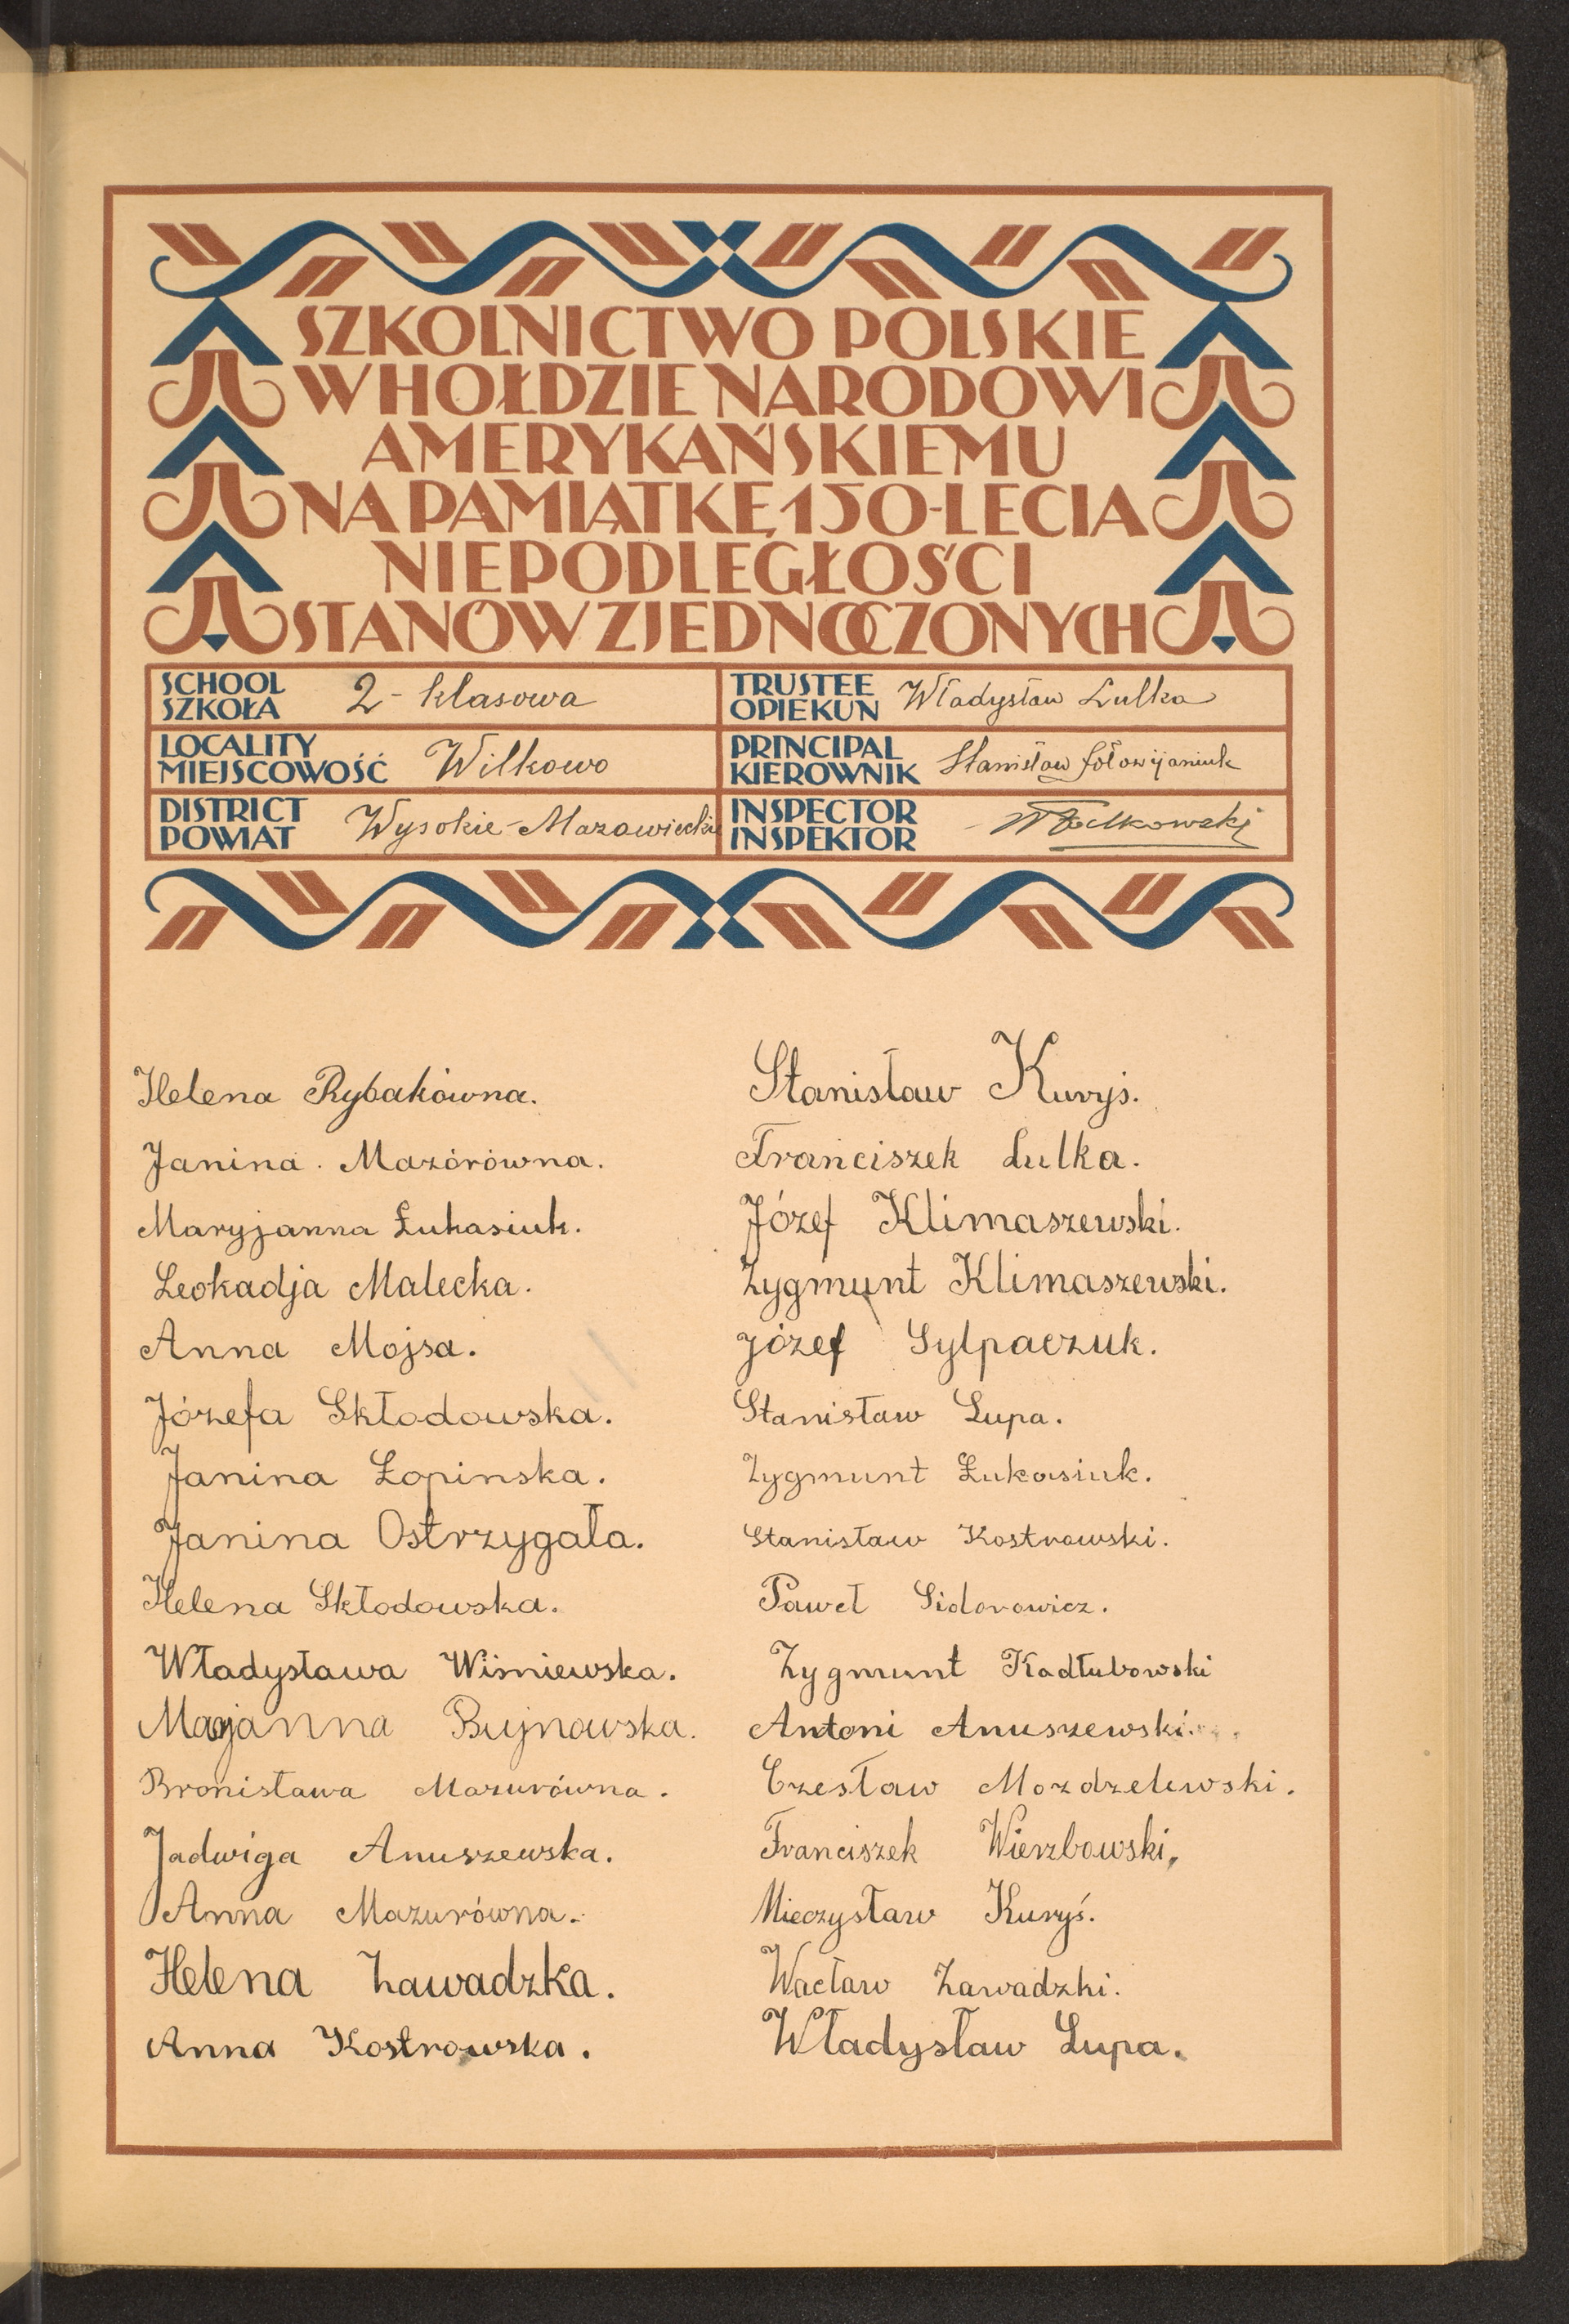 SZKOLNICTWO POLSKIE
W HOŁDZIE NARODOWI
AMERYKAŃSKIEMU
NA PAMIĄTKĘ 150-LECIA
NIEPODLEGŁOŚCI
STANÓW ZJEDNOCZONYCH
SCHOOL
SZKOŁA
2 - klasowa
TRUSTEE
OPIEKUN
Władysław Lulka
LOCALITY
MIEJSCOWOŚĆ
Wilkowo
PRINCIPAL
KIEROWNIK
Stanisław
DISTRICT
POWIAT
Wysokie-Mazowieckie
INSPECTOR
INSPEKTOR
Helena Rybakówna.
Janina. Mazórówna.
Maryjanna Łukasiuk.
Leokadja Malecka.
Anna Mojsa.
Józefa Skłodowska.
Janina Łopinska.
Janina Ostrzygała.
Helena Skłodowska.
Władysława Wiśniewska.
Marjanna Bujnowska.
Bronisława Mazurówna.
Jadwiga Anuszewska.
Anna Mazurówna.
Helena Zawadzka.
Anna Kostrowska.
Stanisław Kuryś.
Franciszek Lulka.
Józef Klimaszewski.
Zygmunt Klimaszewski.
Józef Sylpaczuk.
Stanisław Lupa.
Zygmunt Łukasiuk.
Stanisław Kostrowski.
Paweł Sidorowicz.
Zygmunt Kadłubowski
Antoni Anuszewski.
Czesław Mozdzelewski.
Franciszek Wierzbowski,
Mieczysław Kuryś.
Wacław Zawadzki.
Władysław Lupa.